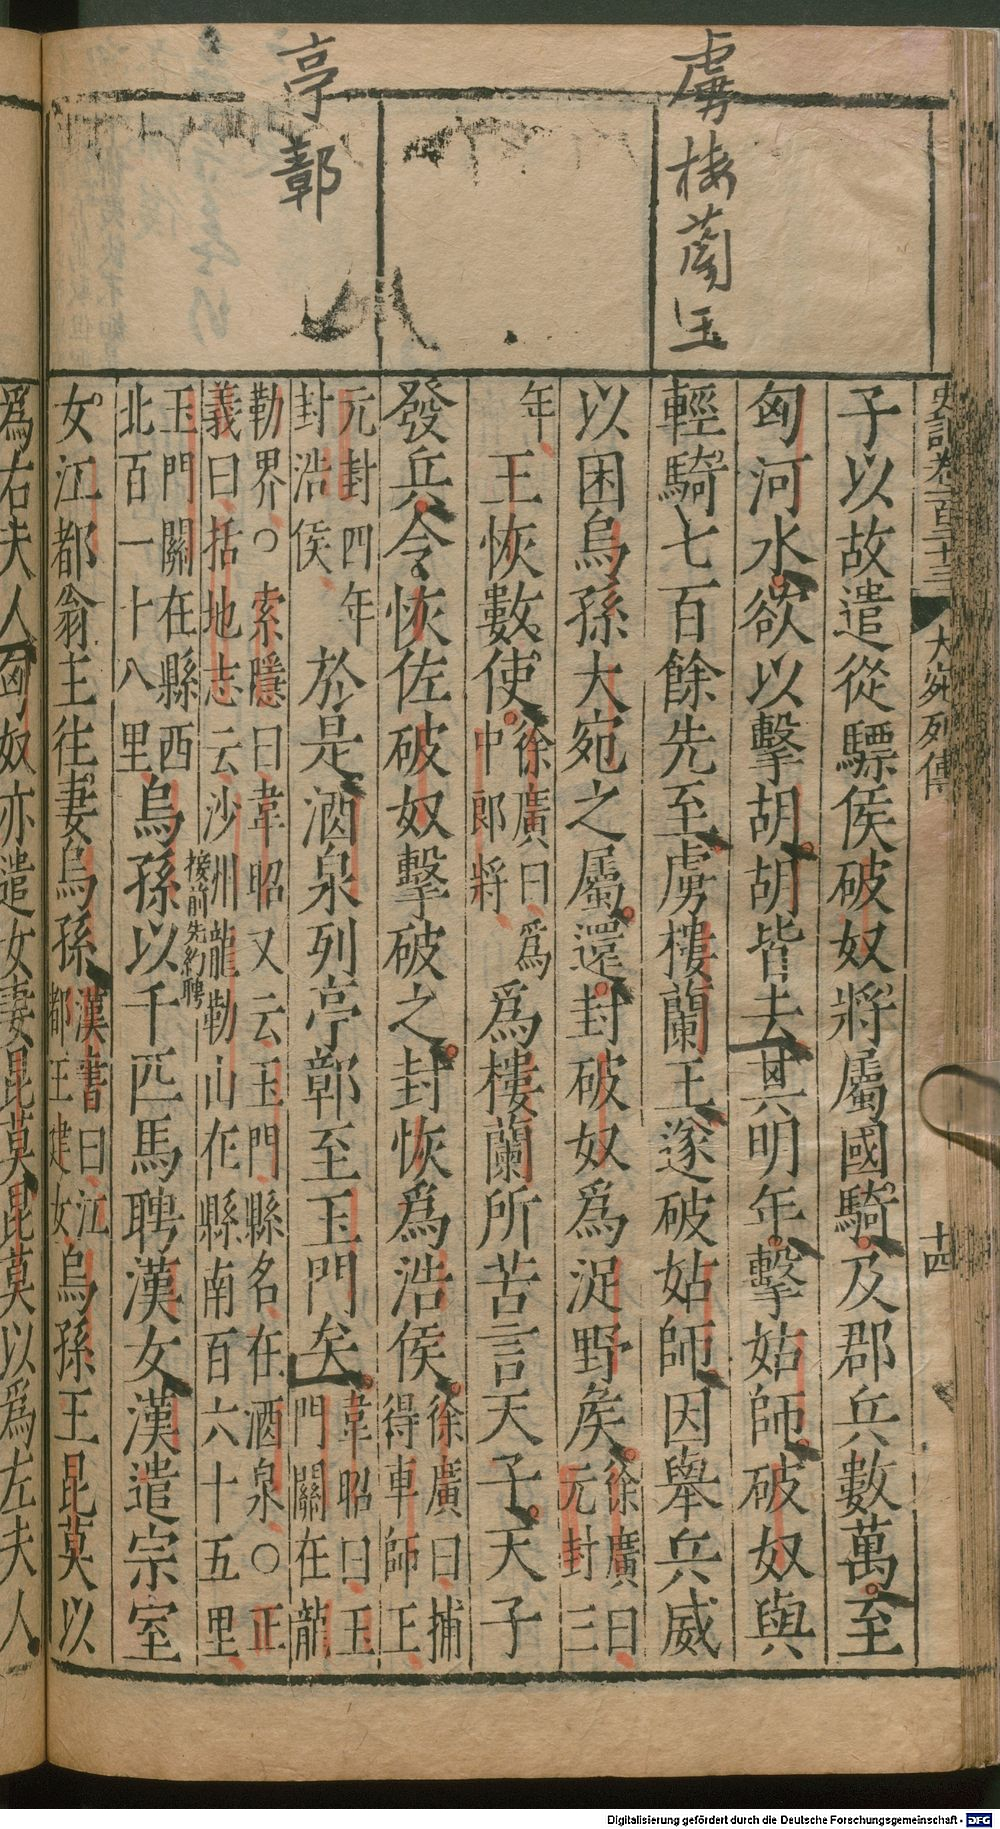 虜樓蘭王
亭鄣
史記卷一百二十三
大宛列傳
十四
子以故遣從驃侯破奴將屬國騎及郡兵數萬至
匈河水欲以擊胡胡皆去其明年擊姑師破奴與
輕騎七百餘先至虜樓蘭王遂破姑師因舉兵威
以困烏孫大宛之屬還封破奴爲浞野矦徐廣曰
元封三
年王恢數使徐廣曰爲
中郎將爲樓蘭所苦言天子天子
發兵令恢佐破奴擊破之封恢爲浩侯徐廣曰捕
得車師王
元封四年
封浩侯於是酒泉列亭鄣至玉門矣韋昭曰玉
門關在龍
勒界○索隱曰韋昭又云玉門縣名在酒泉○正
義曰括地志云沙州龍勒山在縣南百六十五里
玉門關在縣西
北百一十八里烏孫以千匹馬聘漢女漢遣宗室
按前先約聘
女江都翁主往妻烏孫漢書曰江
都王建女烏孫王昆莫以
爲右夫人匈奴亦遣女妻昆莫昆莫以爲左夫人
Digitalisierung gefördert durch die Deutsche Forschungsgemeinschaft - DFG